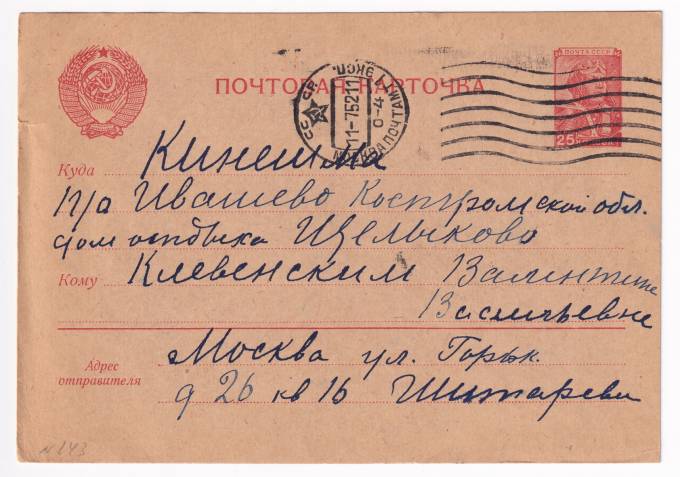 ПОЧТА СССР
ПОЧТОВАЯ КАРТОЧКА
25
СССР
МОСКВА ПОЧТАМТ 1 ЭКСП.
11-75211
0-4
Куда Кинешма
п/о Ивашево Костромской обл.
дом отдыха Щелыково
Кому Клевенским Валентине
Васильевне
Адрес отправителя
Москва ул. Горьк.
д 26 кв 16
N 243